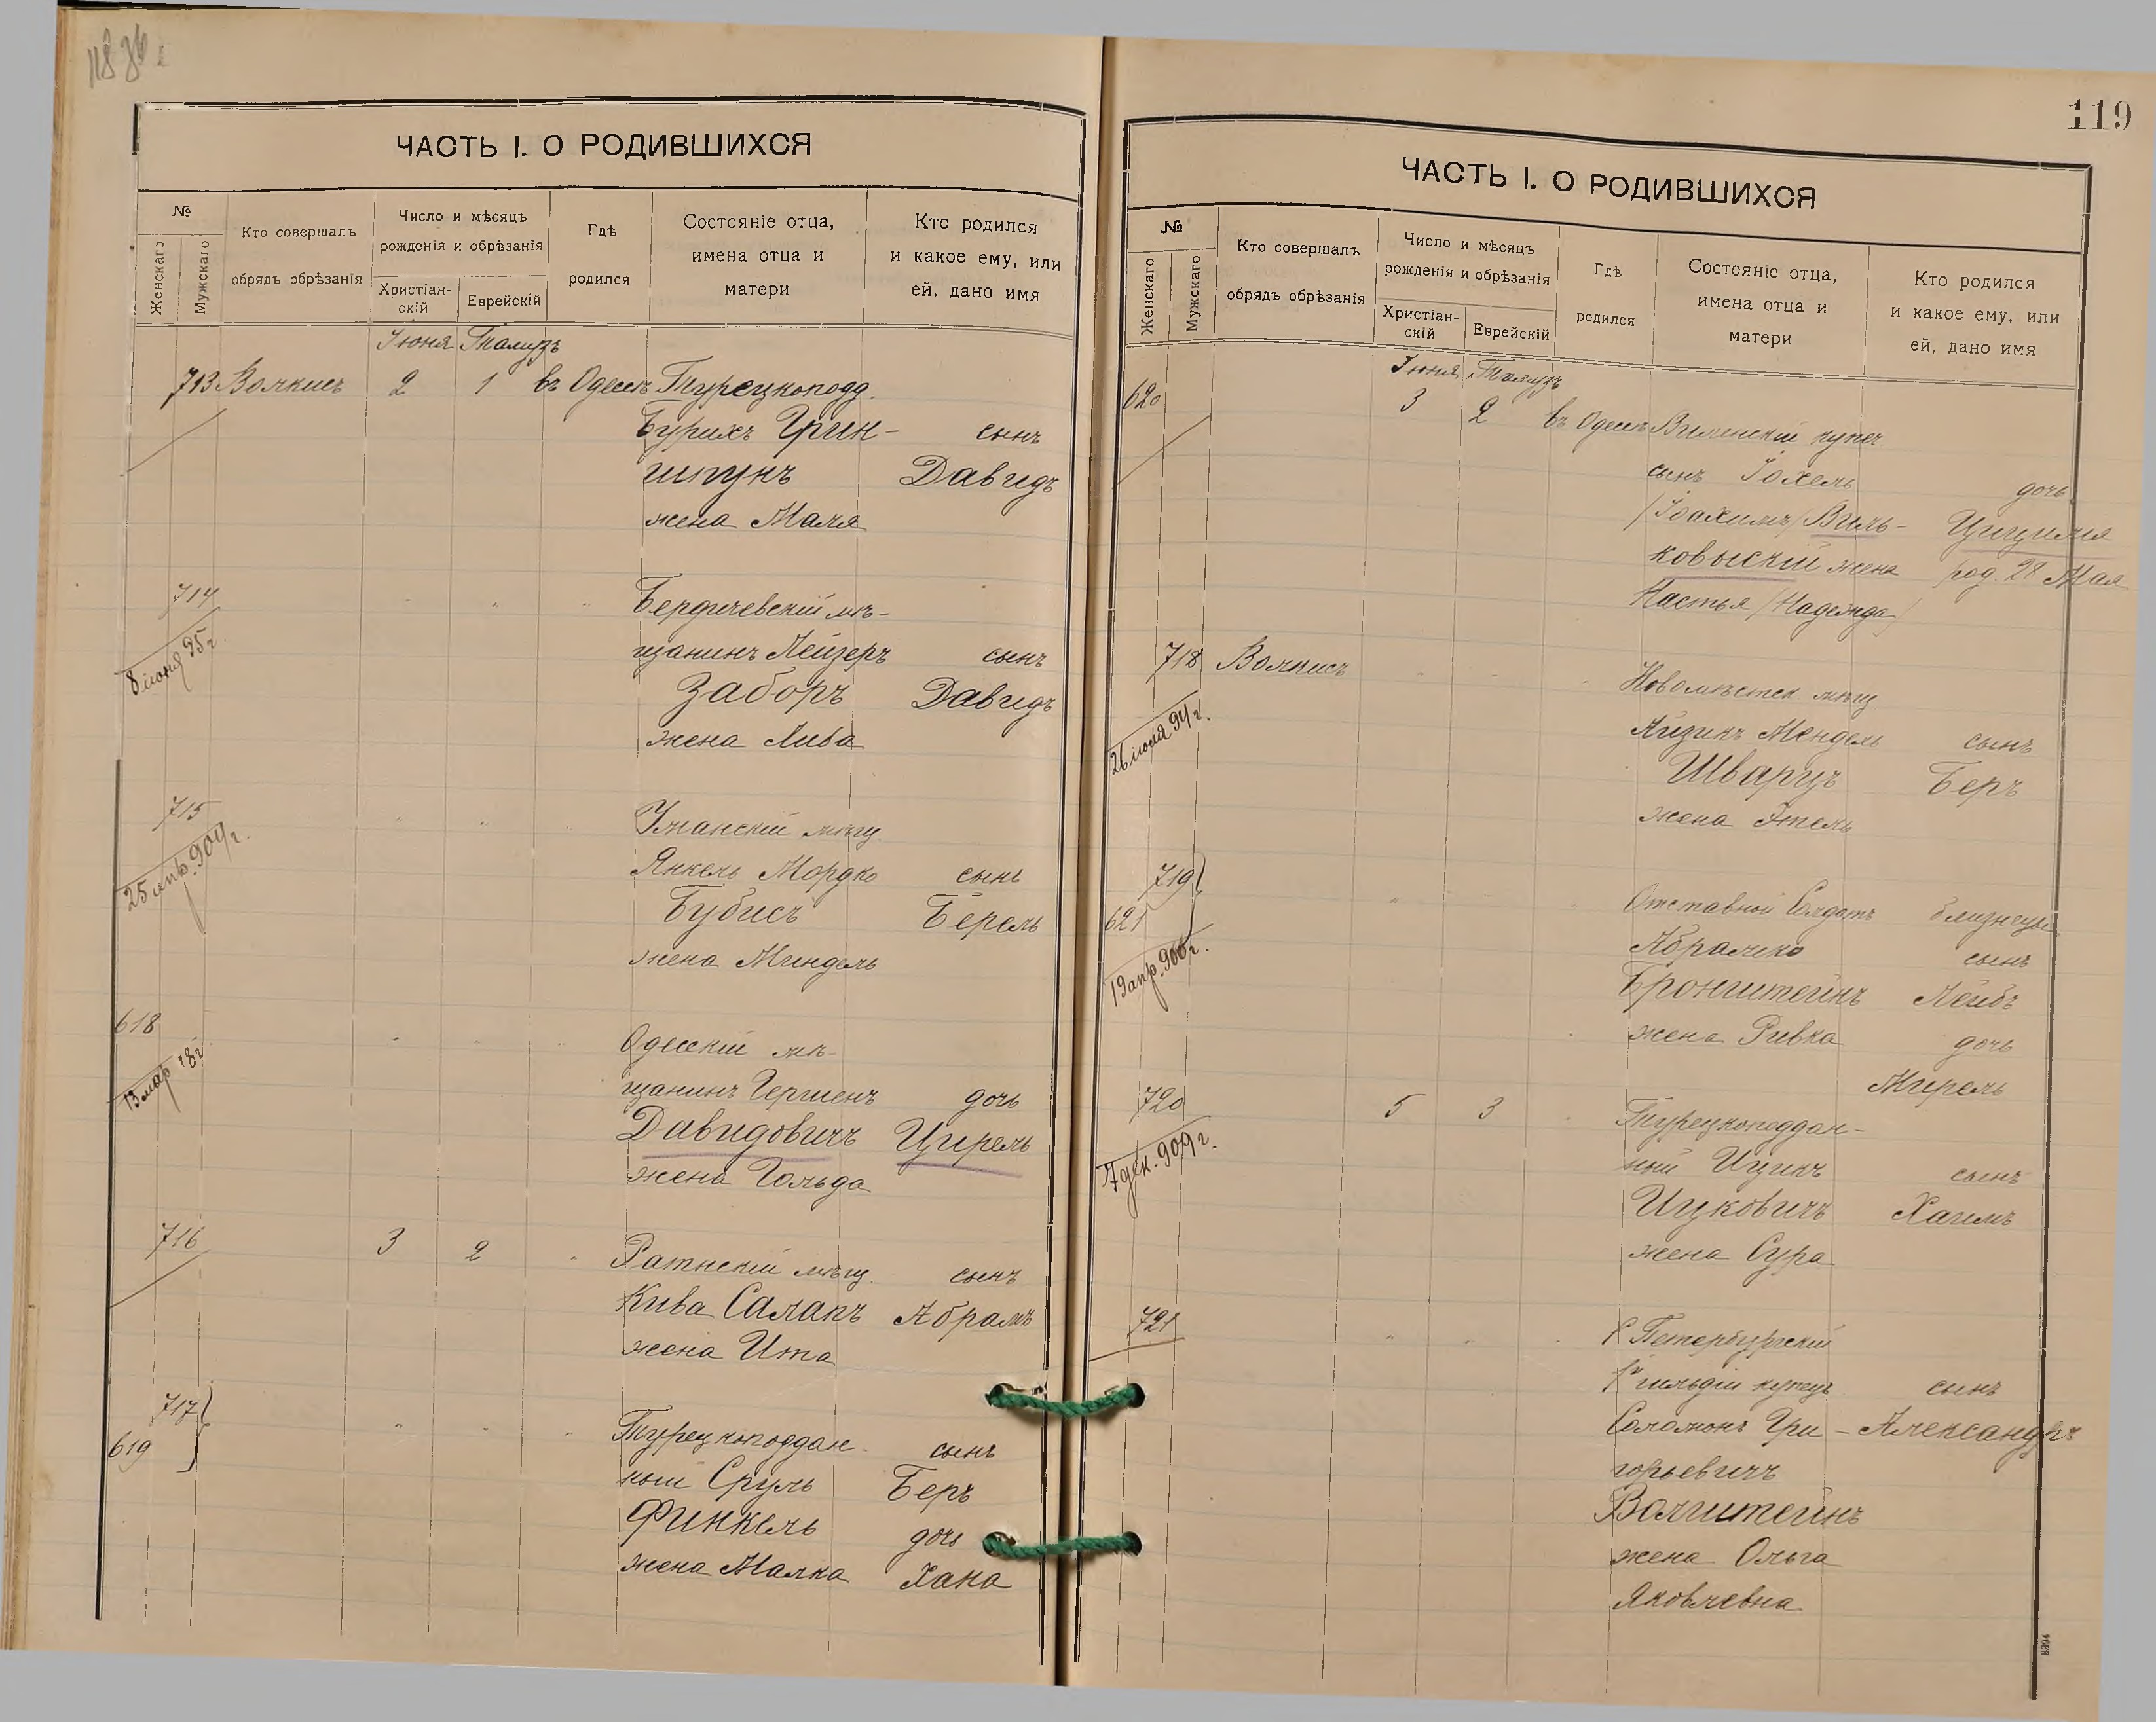 118 об.
ЧАСТЬ I. О РОДИВШИХСЯ
№
Женскаго
Мужскаго
Кто совершалъ
обрядъ обрѣзанія
Число и мѣсяцъ
рожденія и обрѣзанія
Христіан-
скій
Еврейскій
Гдѣ
родился
Состояніе отца,
имена отца и
матери
Кто родился
и какое ему, или
ей, дано имя
Іюня Тамузъ
713 Волкисъ 2 1 въ Одессѣ Турецкоподд.
Бурихъ Грин- сынъ
шпунъ Давидъ
жена Маля
714 Бердичевскій мѣ-
8 іюня 95 г. щанинъ Лейзеръ сынъ
Заборъ Давидъ
жена Лива
715 Уманскій мѣщ.
25 апр. 904 г. Янкель Мордко сынъ
Бубисъ Берель
жена Миндель
618 Одесскій мѣ-
13 мар 18 г щанинъ Гершенъ дочь
Давидовичъ Цирель
жена Гольда
716 3 2 Ратнскій мѣщ. сынъ
Кива Салапъ Абрамъ
жена Ита
717 Турецкоподдан- сынъ
619 ный Сруль Беръ
Финкель дочь
жена Малка Хана
119
ЧАСТЬ I. О РОДИВШИХСЯ
№
Женскаго
Мужскаго
Кто совершалъ
обрядъ обрѣзанія
Число и мѣсяцъ
рожденія и обрѣзанія
Христіан-
скій
Еврейскій
Гдѣ
родился
Состояніе отца,
имена отца и
матери
Кто родился
и какое ему, или
ей, дано имя
Іюня Тамузъ
620 3 2 въ Одессѣ Виленскій купеч
сынъ Іохель дочь
/Іоахимъ/ Виль- Цицилія
ковыскій жена род. 28 Мая
Настья /Надежда/
718 Волкисъ Новомѣстск мѣщ
26 іюля 94 г. Айзикъ Мендель сынъ
Шварцъ Беръ
жена Этель
719
621 Отставной Солдатъ близнецы
19 апр. 906 г. Абрамко сынъ
Бронштейнъ Лейбъ
жена Ривка дочь
Мирель
720 5 3 Турецкоподдан-
7 дек. 909 г. ный Ицикъ сынъ
Ицковичъ Хаимъ
жена Сура
721 С Петербургскій
1й гильдіи купецъ сынъ
Соломонъ Гри- Александръ
горьевичъ
Волштейнъ
жена Ольга
Яковлевна
8394